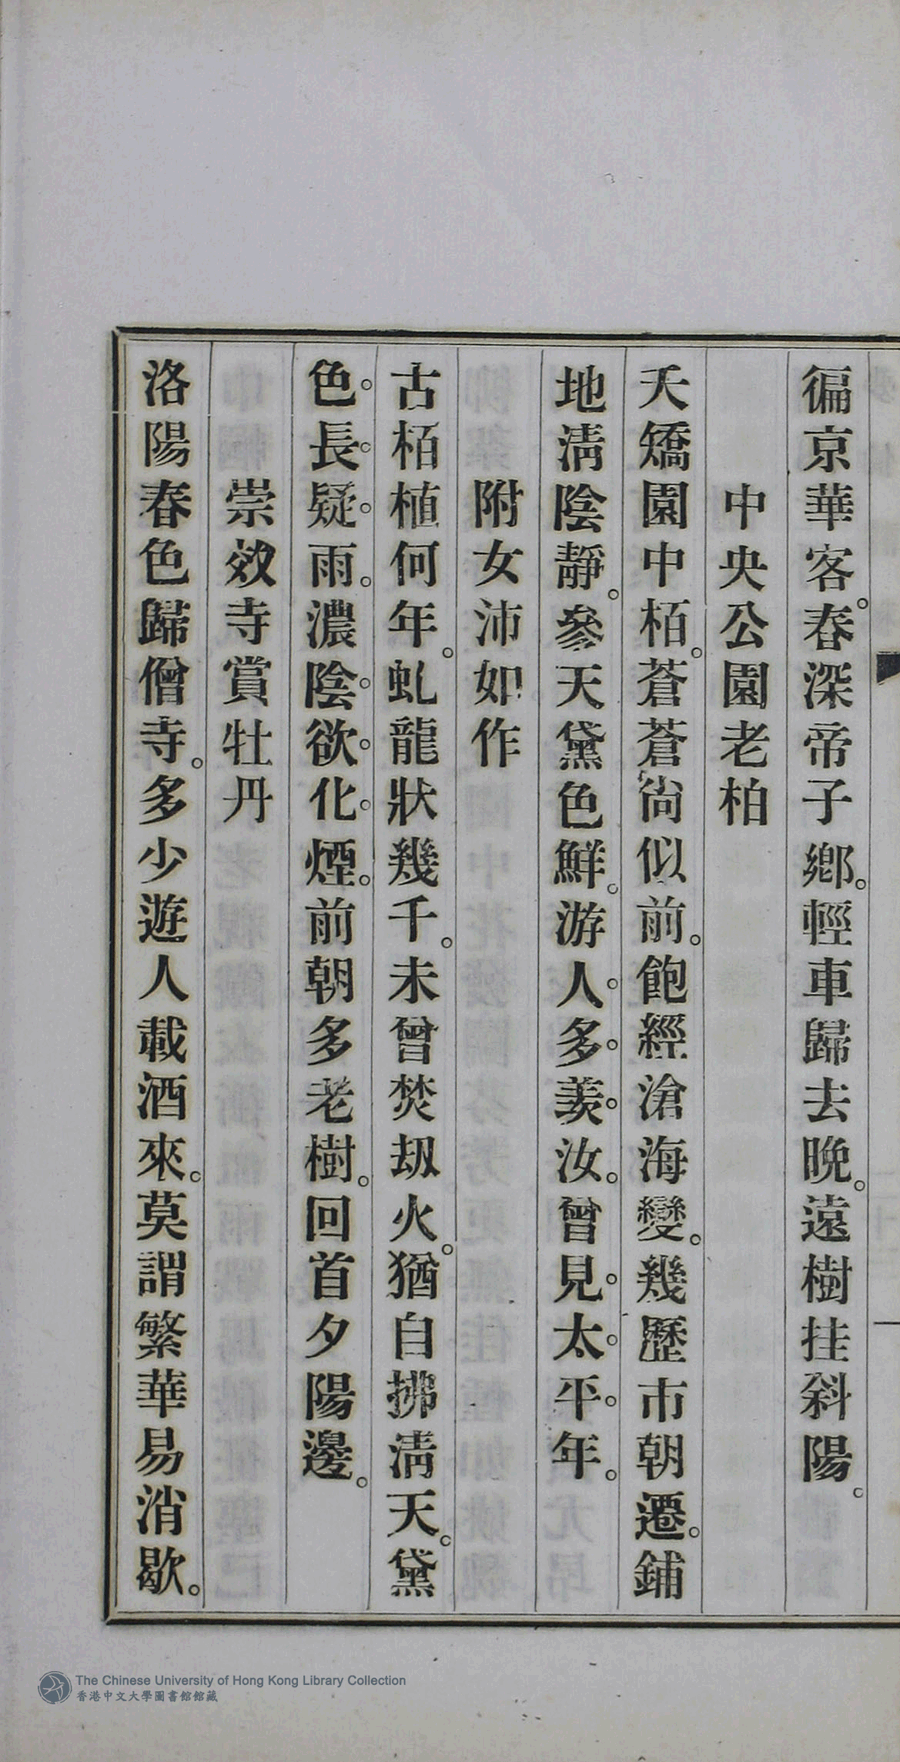 徧京華客。春深帝子鄉。輕車歸去晚。遠樹挂斜陽。
中央公園老柏
夭矯園中栢。蒼蒼尙似前。飽經滄海變。幾歷市朝遷。鋪
地淸陰靜。參天黛色鮮。游人多羨汝。曾見太平年。
附女沛如作
古栢植何年。虬龍狀幾千。未曾焚刼火。猶自拂淸天。黛
色長疑雨。濃陰欲化煙。前朝多老樹。回首夕陽邊。
崇效寺賞牡丹
洛陽春色歸僧寺。多少遊人載酒來。莫謂繁華易消歇。
The Chinese University of Hong Kong Library Collection
香港中文大學圖書館館藏